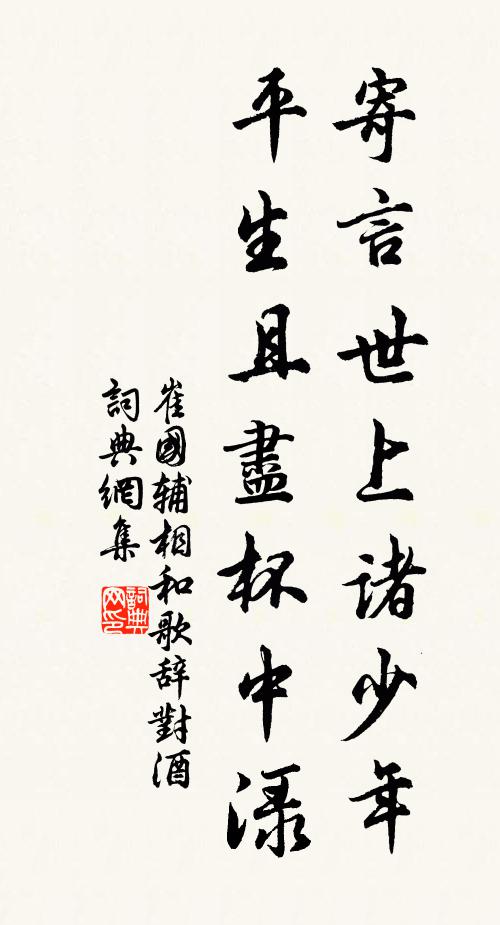 寄言世上諸少年
平生且盡杯中渌
崔國辅相和歌辞對酒
詞典網集
詞典网印